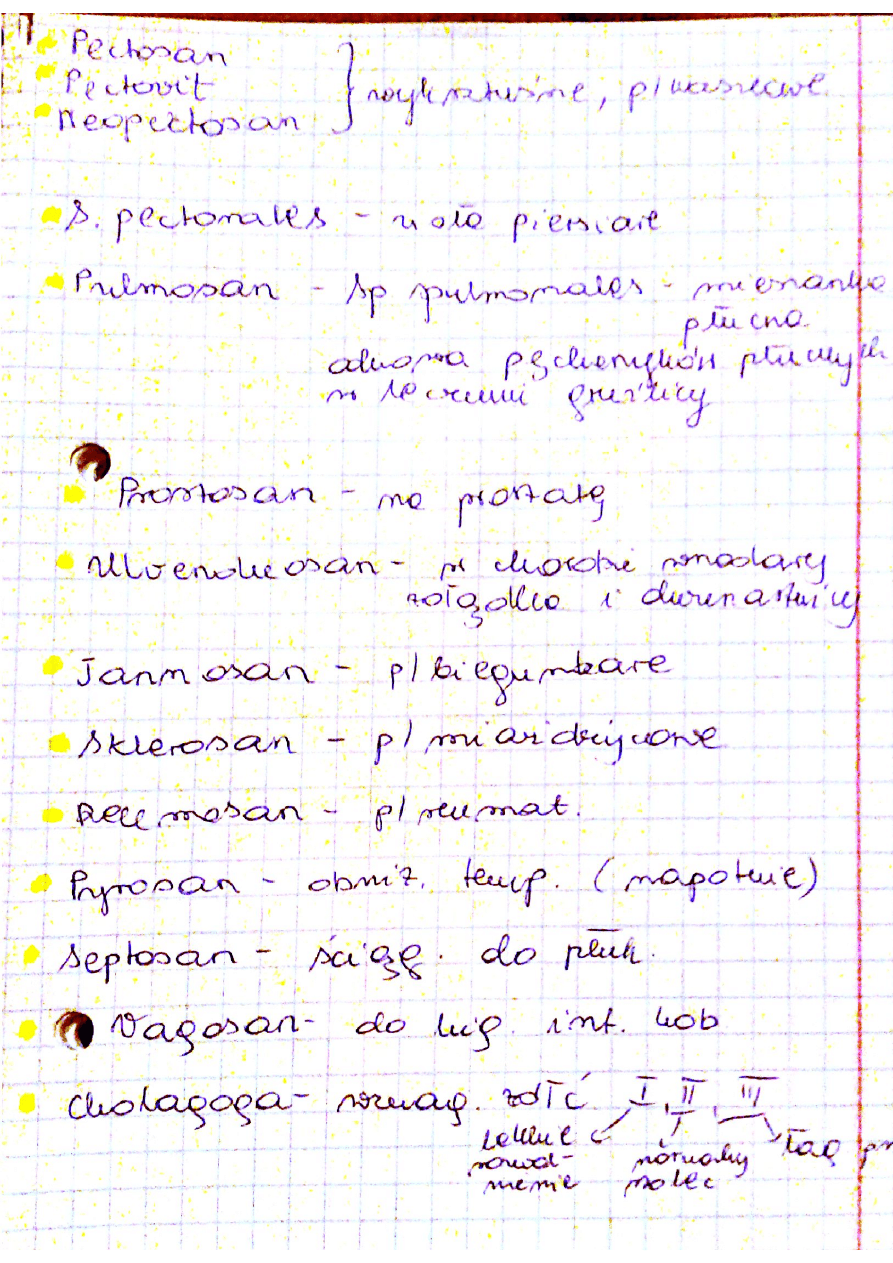 Pectosan
Pectovit } wykrztuśne, p/kaszlowe
Neopectosan
S. pectorales - zioła piersiowe
Pulmosan - Sp pulmonales - mieszanka
płucna
pęcherzyków płucnych
w leczeniu gruźlicy
Prostosan - na prostatę
- w chorobie wrzodowej
żołądka i dwunastnicy
Tannosan - p/biegunkowe
Sklerosan - p/miażdżycowe
Reumosan - p/reumat.
Pyrosan - obniż. temp. (napotnie)
Septosan - ściąg. do płuk.
Vagosan - do hig. int. kob
Cholagoga - żółć I, II, III
lekkie
normalny